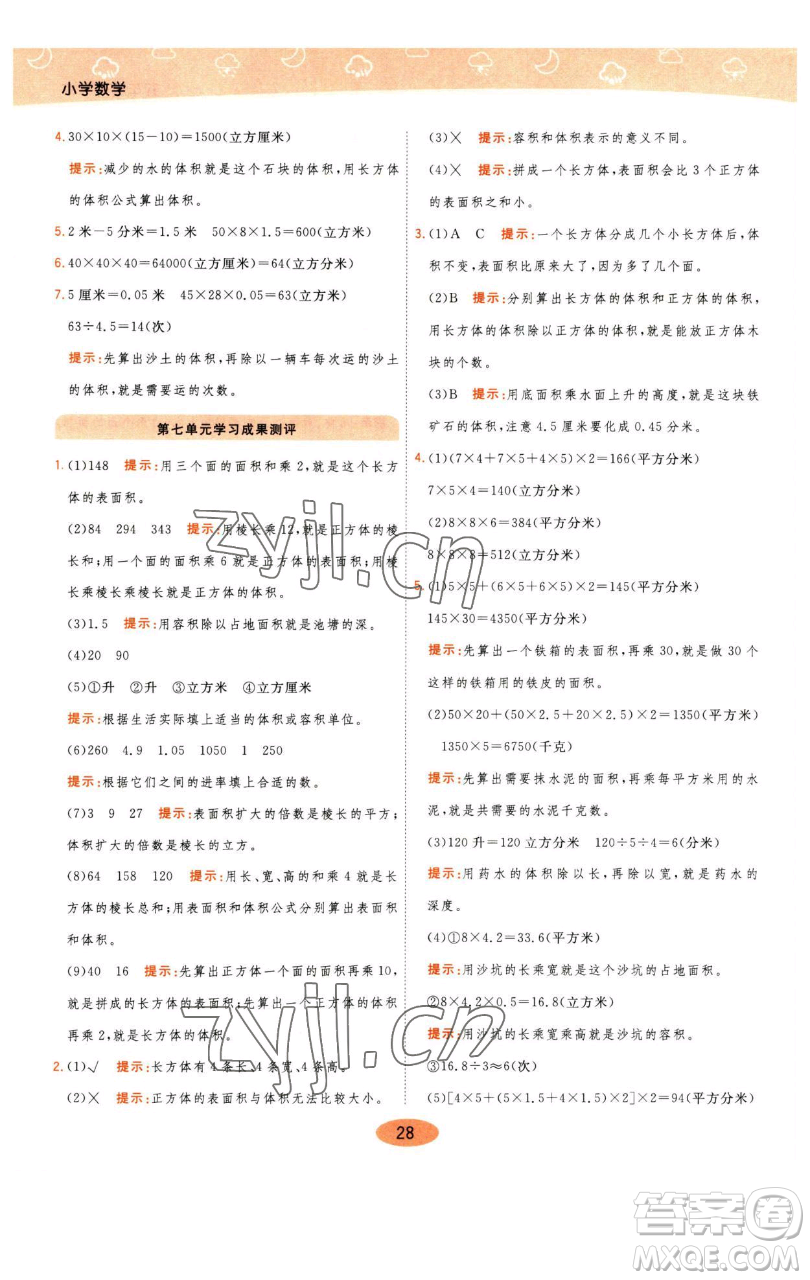 小学数学
4.30×10×(15-10)=1500(立方厘米)
提示:减少的水的体积就是这个石块的体积,用长方体
的体积公式算出体积。
5.2米-5分米=1.5米 50×8×1.5=600(立方米)
6.40×40×40=64000(立方厘米)=64(立方分米)
7.5厘米=0.05米 45×28×0.05=63(立方米)
63÷4.5=14(次)
提示:先算出沙土的体积,再除以一辆车每次运的沙土
的体积,就是需要运的次数。
第七单元学习成果测评
1.(1)148 提示:用三个面的面积和乘2,就是这个长方
体的表面积。
(2)84 294 343 提示:用棱长乘12,就是正方体的棱
长和;用一个面的面积乘6就是正方体的表面积;用棱
长乘棱长乘棱长就是正方体的体积。
(3)1.5 提示:用容积除以占地面积就是池塘的深。
(4)20 90
(5)①升 ②升 ③立方米 ④立方厘米
提示:根据生活实际填上适当的体积或容积单位。
(6)260 4.9 1.05 1050 1 250
提示:根据它们之间的进率填上合适的数。
(7)3 9 27 提示:表面积扩大的倍数是棱长的平方;
体积扩大的倍数是棱长的立方。
(8)64 158 120 提示:用长、宽、高的和乘4就是长
方体的棱长总和;用表面积和体积公式分别算出表面积
和体积。
(9)40 16 提示:先算出正方体一个面的面积再乘10,
就是拼成的长方体的表面积;先算出一个正方体的体积
再乘2,就是长方体的体积。
2.(1)√ 提示:长方体有4条长、4条宽、4条高。
(2)× 提示:正方体的表面积与体积无法比较大小。
(3)× 提示:容积和体积表示的意义不同。
(4)× 提示:拼成一个长方体,表面积会比3个正方体
的表面积之和小。
3.(1)A C 提示:一个长方体分成几个小长方体后,体
积不变,表面积比原来大了,因为多了几个面。
(2)B 提示:分别算出长方体的体积和正方体的体积,
用长方体的体积除以正方体的体积,就是能放正方体木
块的个数。
(3)B 提示:用底面积乘水面上升的高度,就是这块铁
矿石的体积,注意4.5厘米要化成0.45分米。
4.(1)(7×4+7×5+4×5)×2=166(平方分米)
7×5×4=140(立方分米)
(2)8×8×6=384(平方分米)
8×8×8=512(立方分米)
5.(1)5×5+(6×5+6×5)×2=145(平方分米)
145×30=4350(平方分米)
提示:先算出一个铁箱的表面积,再乘30,就是做30个
这样的铁箱用的铁皮的面积。
(2)50×20+(50×2.5+20×2.5)×2=1350(平方米)
1350×5=6750(千克)
提示:先算出需要抹水泥的面积,再乘每平方米用的水
泥,就是一共需要的水泥千克数。
(3)120升=120立方分米 120÷5÷4=6(分米)
提示:用药水的体积除以长,再除以宽,就是药水的
深度。
(4)①8×4.2=33.6(平方米)
提示:用沙坑的长乘宽就是这个沙坑的占地面积。
②8×4.2×0.5=16.8(立方米)
提示:用沙坑的长乘宽乘高就是沙坑的容积。
③16.8÷3≈6(次)
(5)[4×5+(5×1.5+4×1.5)×2]×2=94(平方分米)
28
zyjl.cn
zyjl.cn
答案圈
MXQE.COM